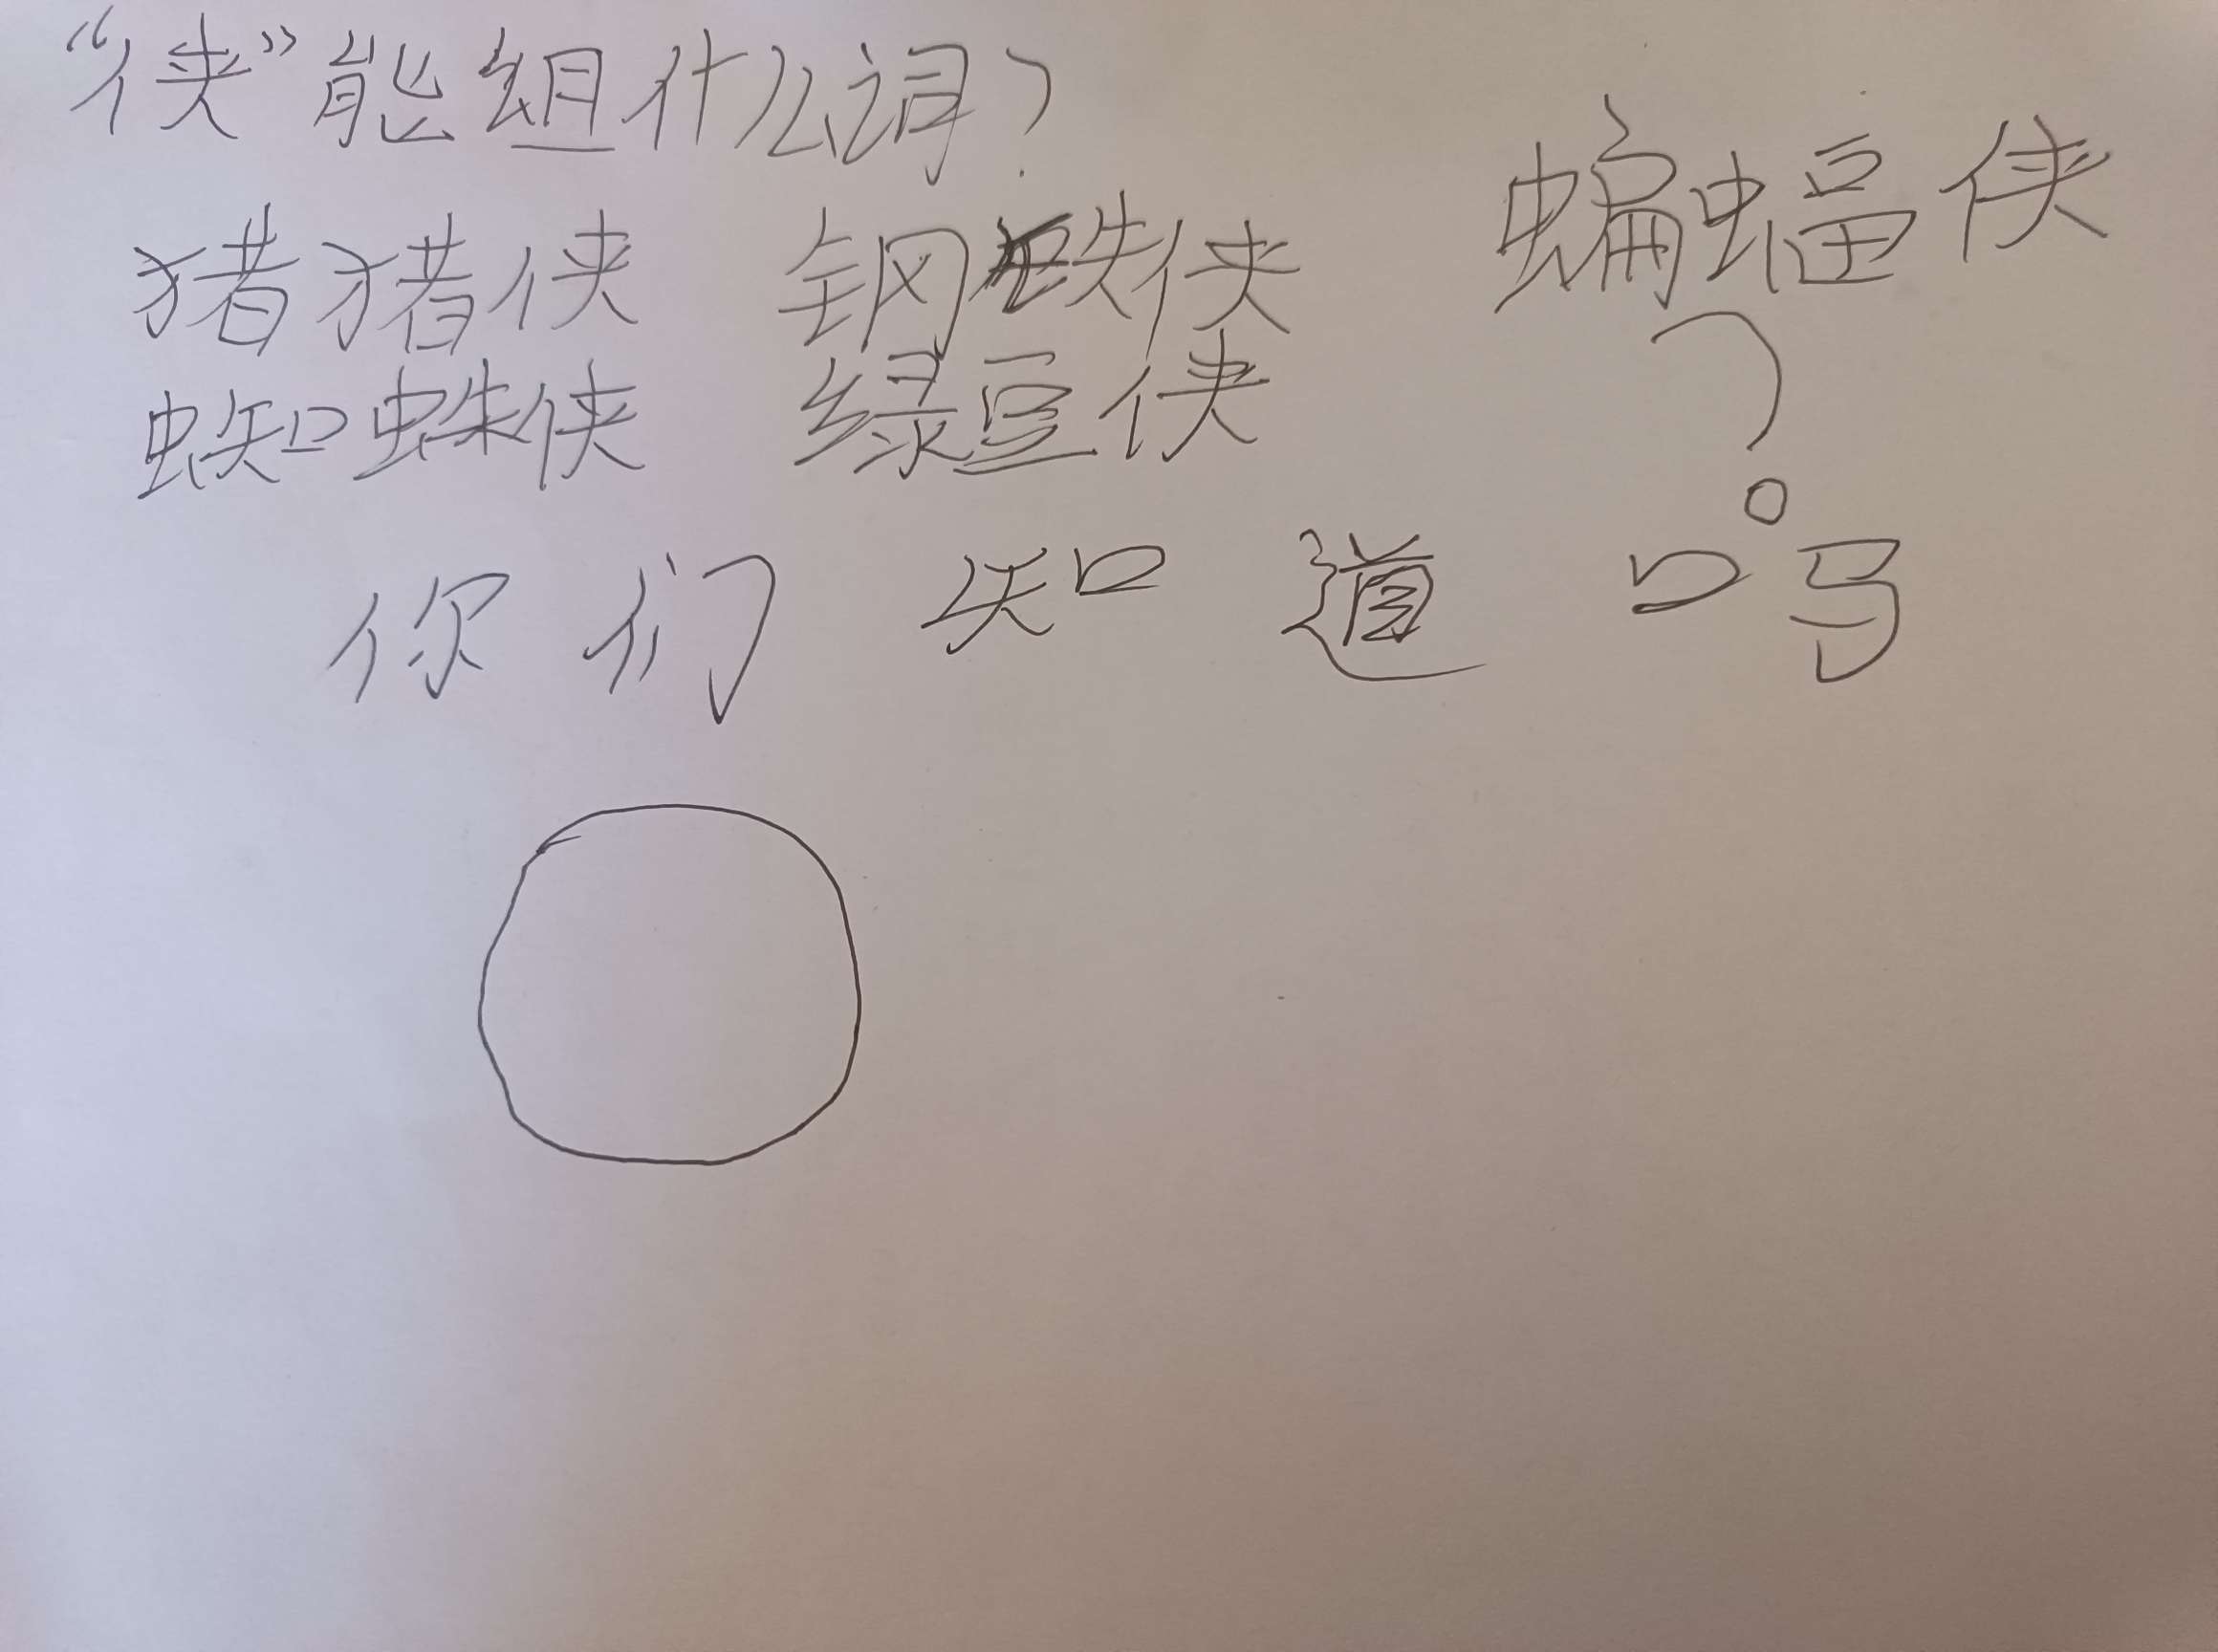 “侠”能组什么词？
猪猪侠 钢铁侠 蝙蝠侠
蜘蛛侠 绿豆侠 ？
你们知道吗